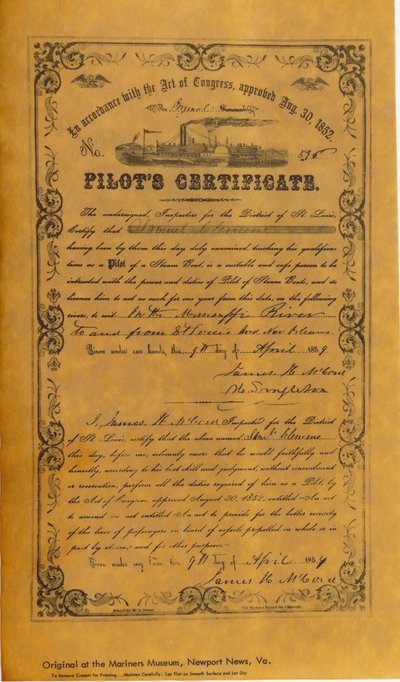 In accordance with the Act of Congress, approved Aug. 30, 1852.
The Original
No. 595
PILOT'S CERTIFICATE.
The undersigned, Inspectors for the District of St Louis,
Certify that Samuel Clemens
having been by them this day duly examined, touching his qualifica-
tions as a Pilot of a Steam Boat, is a suitable and safe person to be
intrusted with the power and duties of Pilot of Steam Boats, and do
license him to act as such for one year from this date, on the following
rivers, to wit On the Mississippi River
to and from St Louis and New Orleans
Given under our hands, this 9th day of April 1859
James H McCord
H. Singleton
I, James H McCord Inspector for the District
of St. Louis, certify that the above named Sam'l Clemens
this day, before me, solemnly swore that he would faithfully and
honestly, according to his best skill and judgment, without concealment
or reservation, perform all the duties required of him as a Pilot by
the Act of Congress, approved August 30, 1852, entitled "An act
to amend an act entitled An act to provide for the better security
of the lives of passengers on board of vessels propelled in whole or in
part by steam, and for other purposes."
Given under my hand this 9th day of April 1859
James H McCord
Original at the Mariners Museum, Newport News, Va.
To Remove Creases for Framing...Moisten Carefully, Lay Flat on Smooth Surface and Let Dry